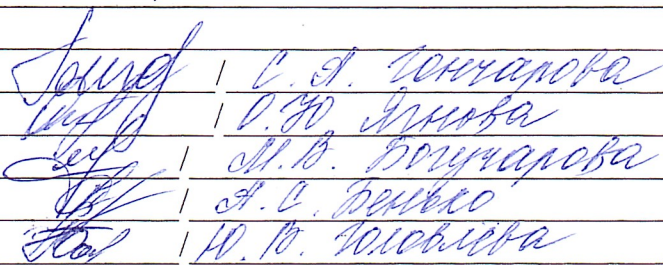 / С. А. Гончарова
/ О. Ю Ягнова
/ М. В. Богучарова
/ А. С. Бенько
/ Ю. В. Головлева